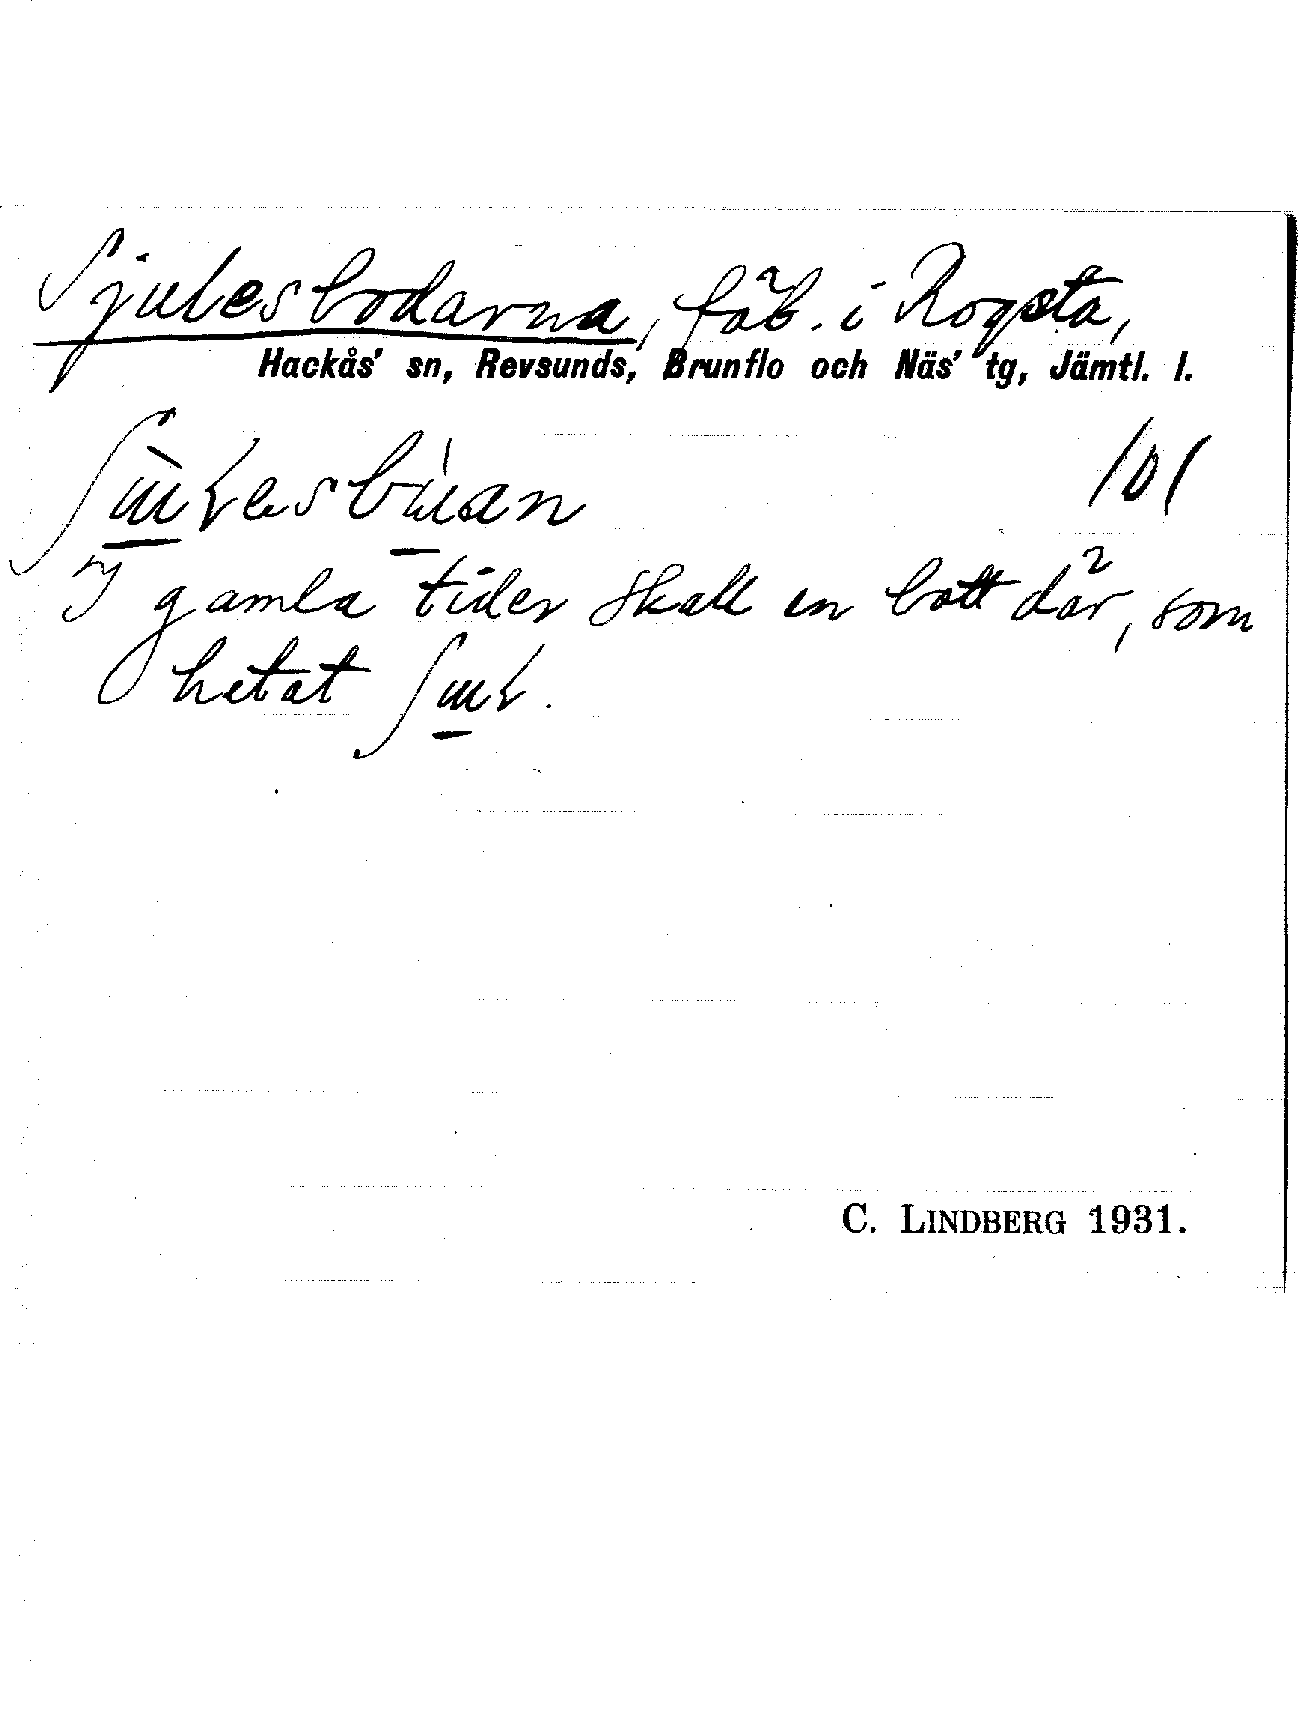 Sjulesbodarna, fäb. i Rogsta,
Hackås' sn, Revsunds, Brunflo och Näs' tg, Jämtl. l.
101
I gamla tider skall en bott där, som
hetat
C. LINDBERG 1931.